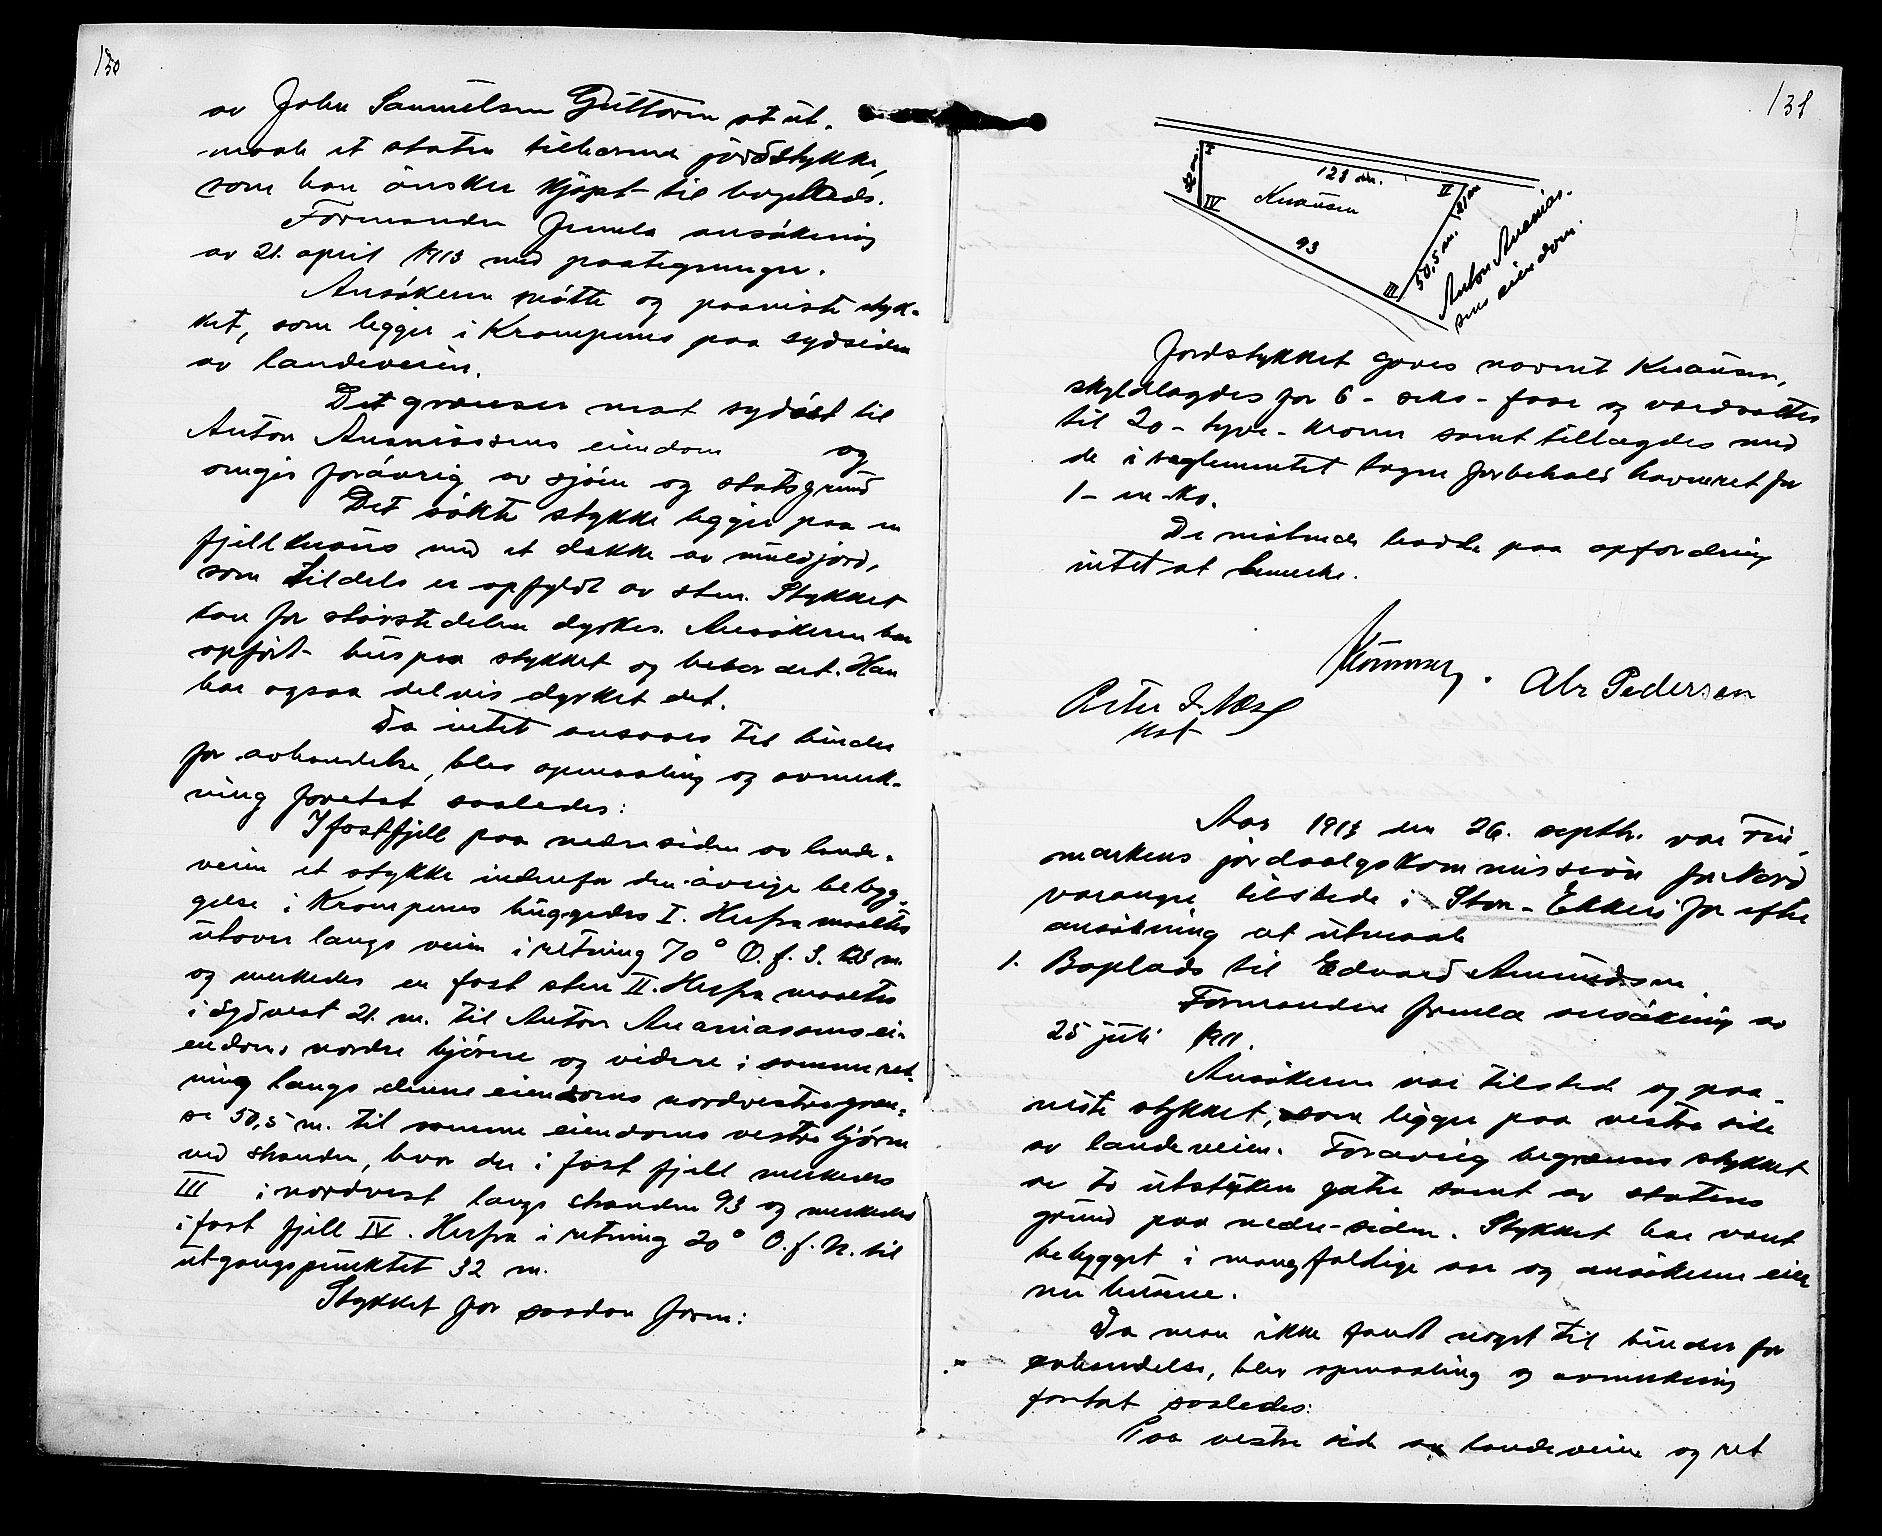 130
av John Samuelsen Guttorm at ut-
maale et staten tilhørende jordstykke,
som han ønsker kjøpt til boplads.
Formanden fremla ansøkning
av 21. april 1913 med paategninger.
Ansøkeren møtte og paaviste styk-
ket, som ligger i Krampenes paa sydsiden
av landeveien.
Det grænser mot sydøst til
Anton Ananiassens eiendom og
omgis forøvrig av sjøen og statsgrund
Det søkte stykke ligger paa en
fjellknaus med et dække av muldjord,
som tildels er opfyldt av sten. Stykket
kan for størstedelen dyrkes. Ansøkeren har
opført hus paa stykket og bebor det. Han
har ogsaa delvis dyrket det.
Da intet ansaaes til hinder
for avhændelse, blev opmaaling og avmerk-
ning foretat saaledes:
I fastfjell paa nedre siden av lande-
veien et stykke indenfor den øvrige bebyg-
gelse i Krampenes huggedes I. Herfra maaltes
utover langs veien i retning 70° Ø. f. S. 128 m.
og merkedes en fast sten II. Herfra maaltes
i sydvest 21. m. til Anton Ananiassens ei-
endoms nordre hjørne og videre i samme ret-
ning langs denne eiendoms nordvestre græn-
se 50,5 m. til samme eiendoms vestre hjørne
ved stranden, hvor der i fast fjell merkedes
III i nordvest langs stranden 93 og merkedes
i fast fjell IV. Herfra i retning 20° Ø. f. N. til
utgangspunktet 32 m.
Stykket har saadan form:
131
I
128 m.
II
21 m
32 m
Knausen
IV
93
50,5 m.
III
Anton Ananias-
sens eiendom.
Jordstykket gaves navnet Knausen,
skyldlagdes for 6 - seks - øre og værdsattes
til 20 - tyve - kroner samt tillagdes med
de i reglementet tagne forbehold havneret for
1 - en ko.
De møtende hadde paa opfordring
intet at bemerke.
Abr Pedersen
Peter J. Næss
Aar 1913 den 26. septbr. var Fin-
markens jordsalgskommission for Nord
varanger tilstede i Stor-Ekkerø for efter
ansøkning at utmaale
1. Boplads til Edvard Amundsen.
Formanden fremla ansøkning av
25 juli 1911.
Ansøkeren var tilstede og paa-
viste stykket, som ligger paa vestre side
av landeveien. Forøvrig begrænses stykket
av to utstukne gater samt av statens
grund paa nedre siden. Stykket har vært
bebygget i mangfoldige aar og ansøkeren eier
nu husene.
Da man ikke fandt noget til hinder for
avhændelse, blev opmaaling og avmerkning
foretat saaledes:
Paa vestre side av landeveien og ret